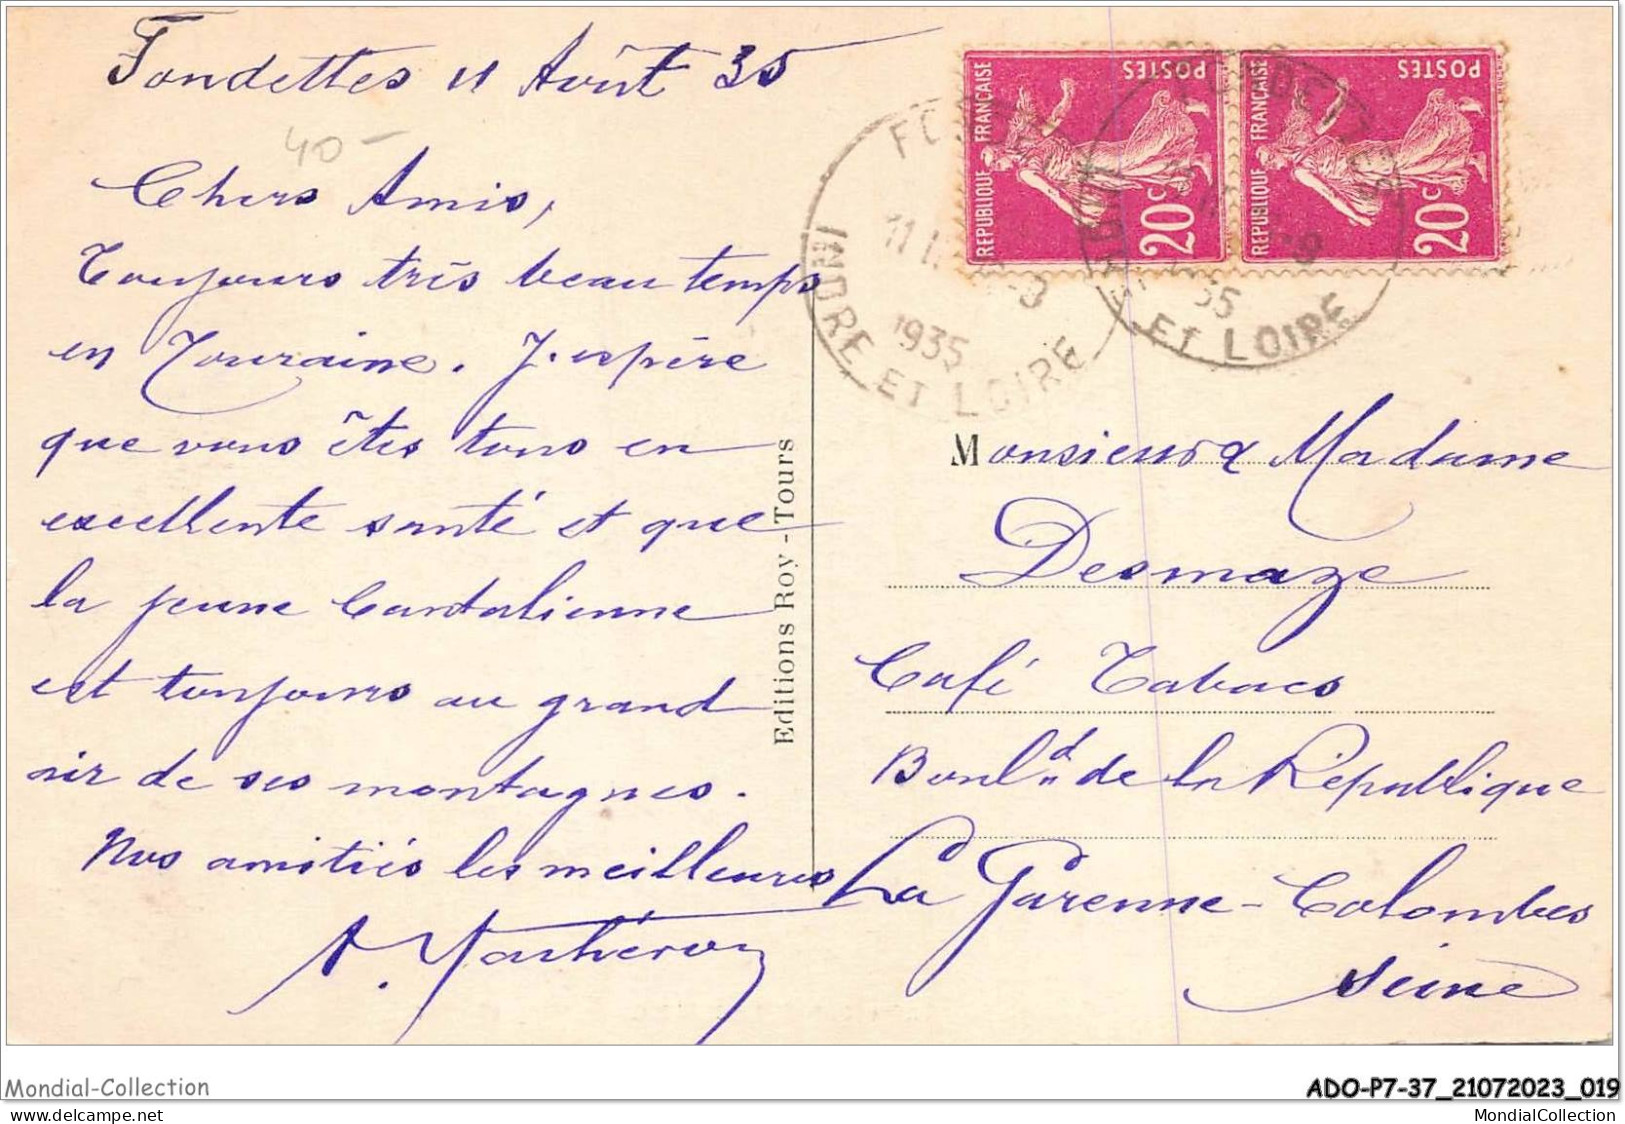 Fondettes 11 Août 35
40-
Chers Amis,
Toujours très beau temps
en Touraine. J'espère
que vous êtes tous en
excellente santé et que
la jeune Cantalienne
est toujours au grand
air de ses montagnes.
Nos amitiés les meilleures
A.
Editions Roy - Tours
REPUBLIQUE FRANÇAISE
POSTES
20c
REPUBLIQUE FRANÇAISE
POSTES
20c
INDRE ET LOIRE
1935
ET LOIRE
35
Monsieur & Madame
Desmaze
Café Tabacs
Bould de la République
La Garenne-Colombes
Seine
Mondial-Collection
ADO-P7-37_21072023_019
www.delcampe.net
MondialCollection